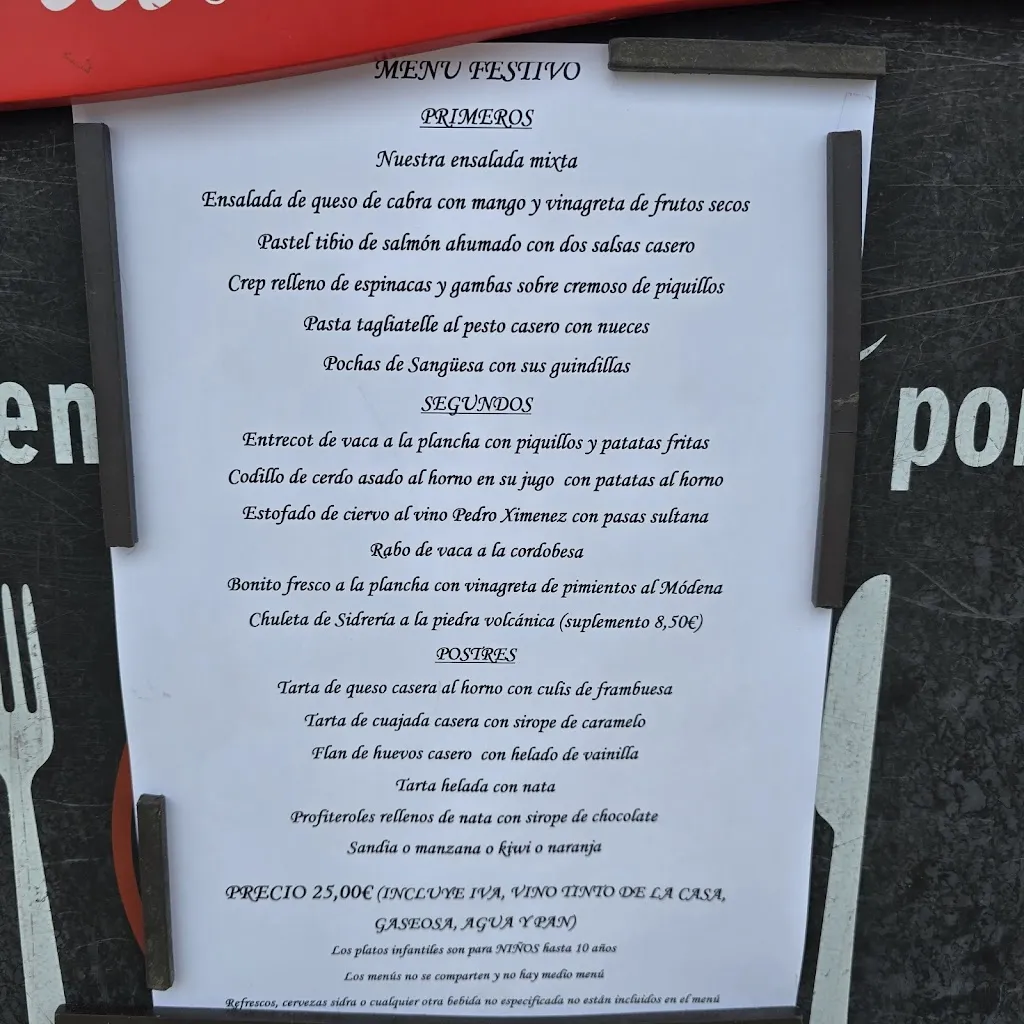 MENU FESTIVO
PRIMEROS
Nuestra ensalada mixta
Ensalada de queso de cabra con mango y vinagreta de frutos secos
Pastel tibio de salmón ahumado con dos salsas casero
Crep relleno de espinacas y gambas sobre cremoso de piquillos
Pasta tagliatelle al pesto casero con nueces
Pochas de Sangüesa con sus guindillas
SEGUNDOS
Entrecot de vaca a la plancha con piquillos y patatas fritas
Codillo de cerdo asado al horno en su jugo con patatas al horno
Estofado de ciervo al vino Pedro Ximenez con pasas sultana
Rabo de vaca a la cordobesa
Bonito fresco a la plancha con vinagreta de pimientos al Módena
Chuleta de Sidrería a la piedra volcánica (suplemento 8,50€)
POSTRES
Tarta de queso casera al horno con culis de frambuesa
Tarta de cuajada casera con sirope de caramelo
Flan de huevos casero con helado de vainilla
Tarta helada con nata
Profiteroles rellenos de nata con sirope de chocolate
Sandia o manzana o kiwi o naranja
PRECIO 25,00€ (INCLUYE IVA, VINO TINTO DE LA CASA,
GASEOSA, AGUA Y PAN)
Los platos infantiles son para NIÑOS hasta 10 años
Los menús no se comparten y no hay medio menú
Refrescos, cervezas sidra o cualquier otra bebida no especificada no están incluidos en el menú
en
por